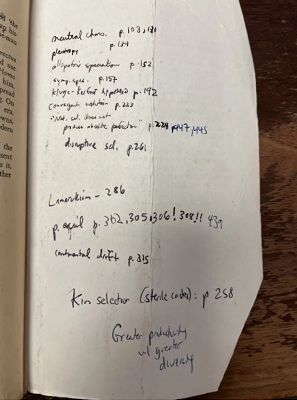 neutral chars. p. 103, 131
pleiotropy p. 134
allopatric speciation p. 152
symp. spec. p. 157
Kluge-Kerfoot hypothesis p. 192
convergent evolution p. 223
"Nat. sel. does not
produce absolute perfection" p. 229 p447 p445
disruptive sel. p. 261
- 286
p. equil p. 302, 305, 306! 308!! 439
continental drift p. 315
Kin selection (sterile castes): p 258
Greater productivity
w/ greater
diversity